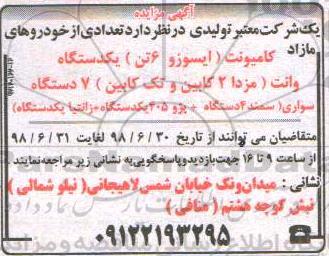 آگهی مزایده
یک شرکت معتبر تولیدی در نظر دارد تعدادی از خودروهای
مازاد
کامیونت ( ایسوزو ۶ تن ) یکدستگاه
وانت ( مزدا ۲ کابین و تک کابین ) ۷ دستگاه
سواری( سمند۴دستگاه + پژو ۴۰۵یکدستگاه+زانتیا یکدستگاه)
متقاضیان می توانند از تاریخ ۹۸/۶/۳۰ لغایت ۹۸/۶/۳۱
از ساعت ۹ تا ۱۶ جهت بازدید و پاسخگویی به نشانی زیر مراجعه نمایند
نشانی : میدان ونک خیابان شمس لاهیجانی( نیلو شمالی )
نبش کوچه هشتم ( منافی )
۰۹۱۲۲۱۹۳۲۹۵